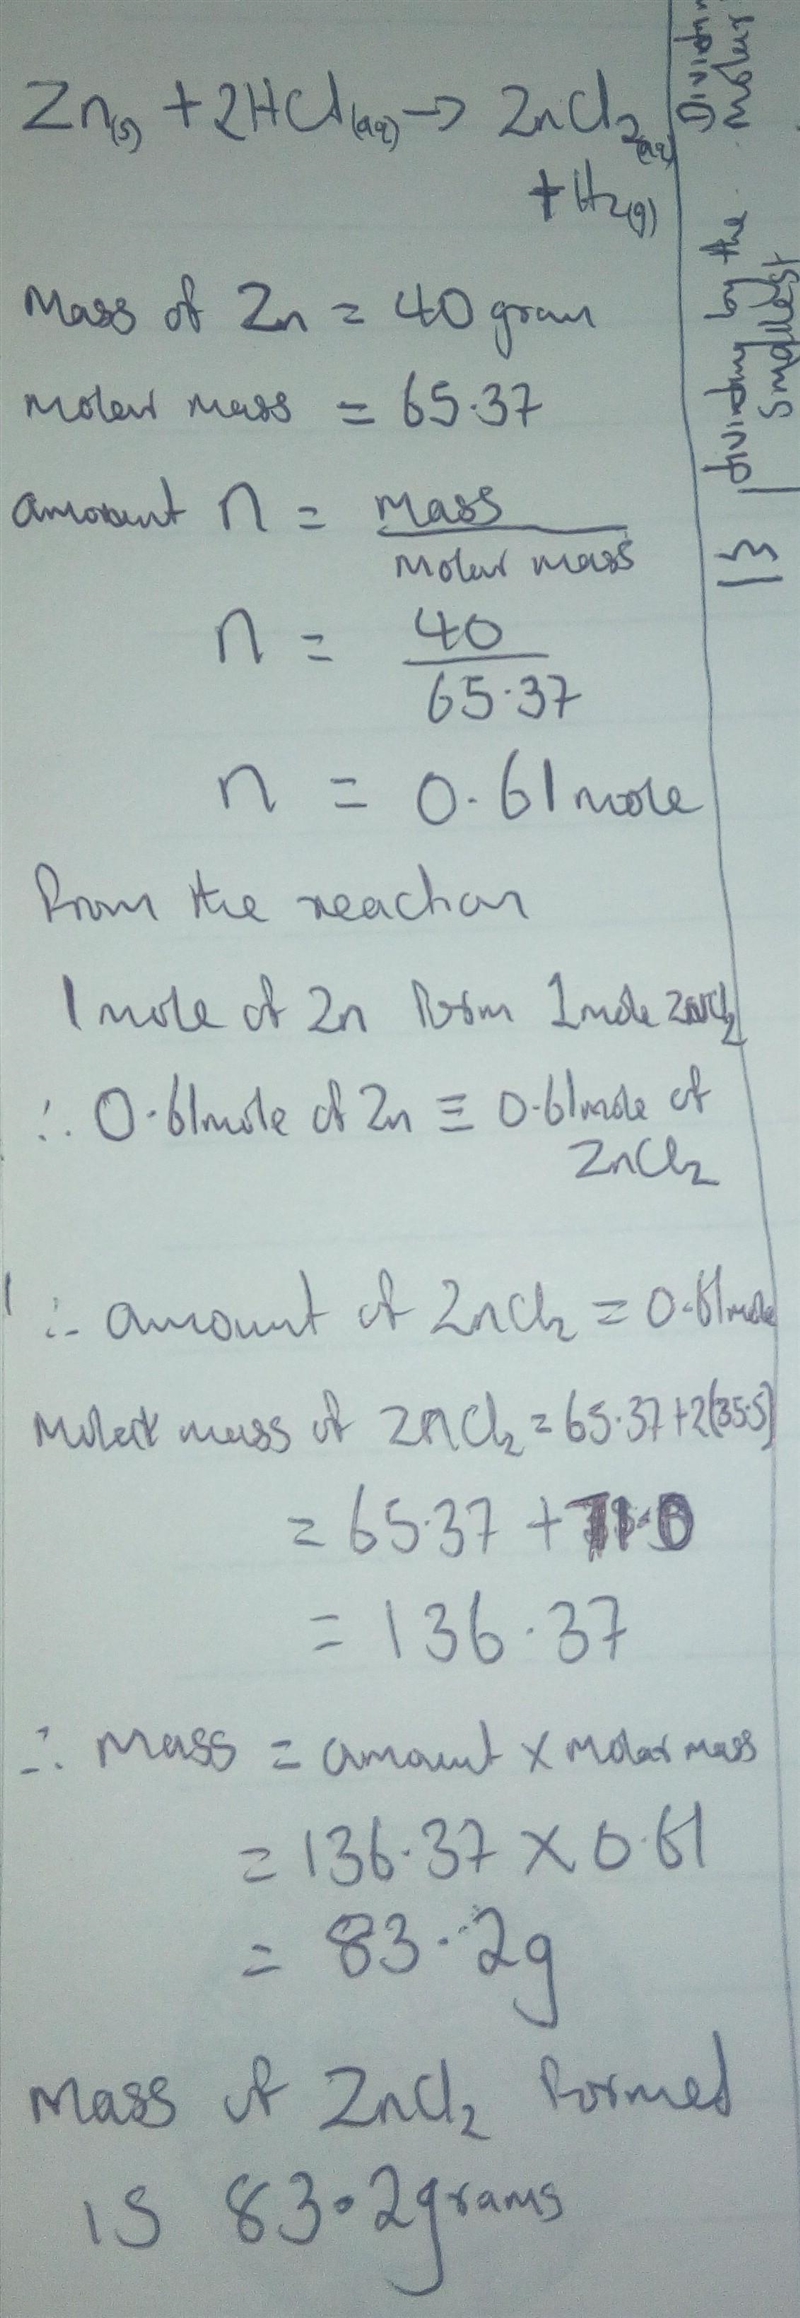 Zn(s) + 2HCl(aq) → ZnCl2(aq)
+ H2(g)
Mass of Zn = 40 gram
molar mass = 65.37
amount n = mass
molar mass
n = 40
65.37
n = 0.61 mole
From the reaction
1 mole of Zn form 1 mole ZnCl2
∴ 0.61 mole of Zn ≡ 0.61 mole of
ZnCl2
∴ amount of ZnCl2 = 0.61 mole
Molar mass of ZnCl2 = 65.37 + 2(35.5)
= 65.37 + 71.0
= 136.37
∴ Mass = amount × molar mass
= 136.37 × 0.61
= 83.2g
Mass of ZnCl2 formed
is 83.2 grams
dividing by the
smallest
13